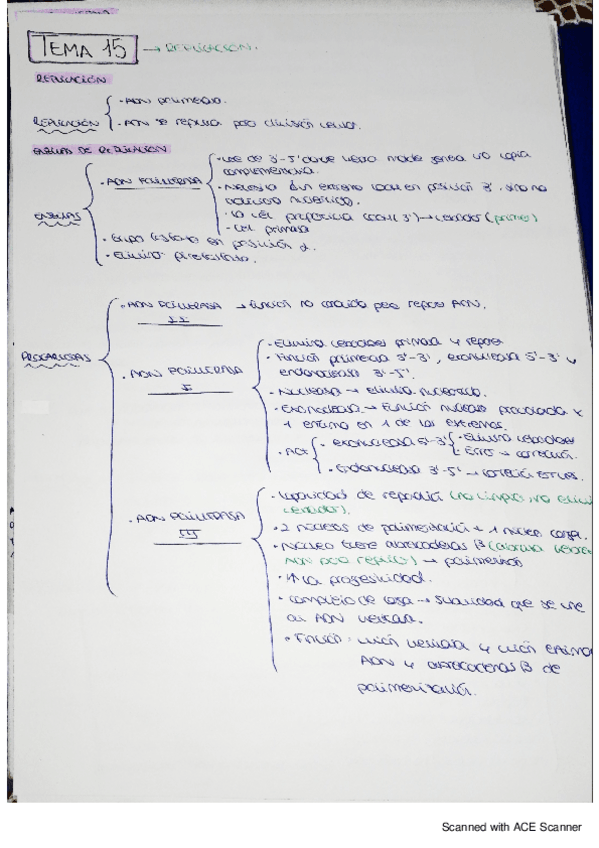 TEMA 15 → REPLICACIÓN.
REPLICACIÓN
REPLICACIÓN
· ADN polimerasa.
· ADN se replica para división celular.
ENZIMAS DE REPLICACIÓN
ENZIMAS
· ADN POLIMERASA
· Lee de 3'-5' donde hebra molde genera una copia
complementaria.
· Necesita un extremo en posición 3'. sino no
nucleótido.
· la cel (OH 3') → cebador (primer)
- cel primasa
· Grupo fosfato en posición α.
· Elimina pirofosfato.
PROCARIOTAS
· ADN POLIMERASA → función no conocida pero repara ADN.
II
· ADN POLIMERASA
I
· Elimina cebadores primasa y repara
· Función polimerasa 5'-3', exonucleasa 5'-3' y
endonucleasa 3'-5'.
· Nucleasa → elimina nucleótido.
· Exonucleasa → Función nucleasa x
1 enzima en 1 de los extremos.
· ACT
· exonucleasa 5'-3'
· Elimina cebadores
· → corrección.
· Endonucleasa 3'-5' → corrección
· ADN POLIMERASA
III
· Capacidad de replicar (no limpia, no elimina
cebador).
· 2 núcleos de polimerización + 1 núcleo
· Núcleo tiene abrazaderas β
ADN para → polimerasa
· ↑ la progresividad.
· Complejo de carga → subunidad que se une
al ADN
· Función: unión y unión enzima
ADN y abrazaderas β de
polimerización.
Scanned with ACE Scanner